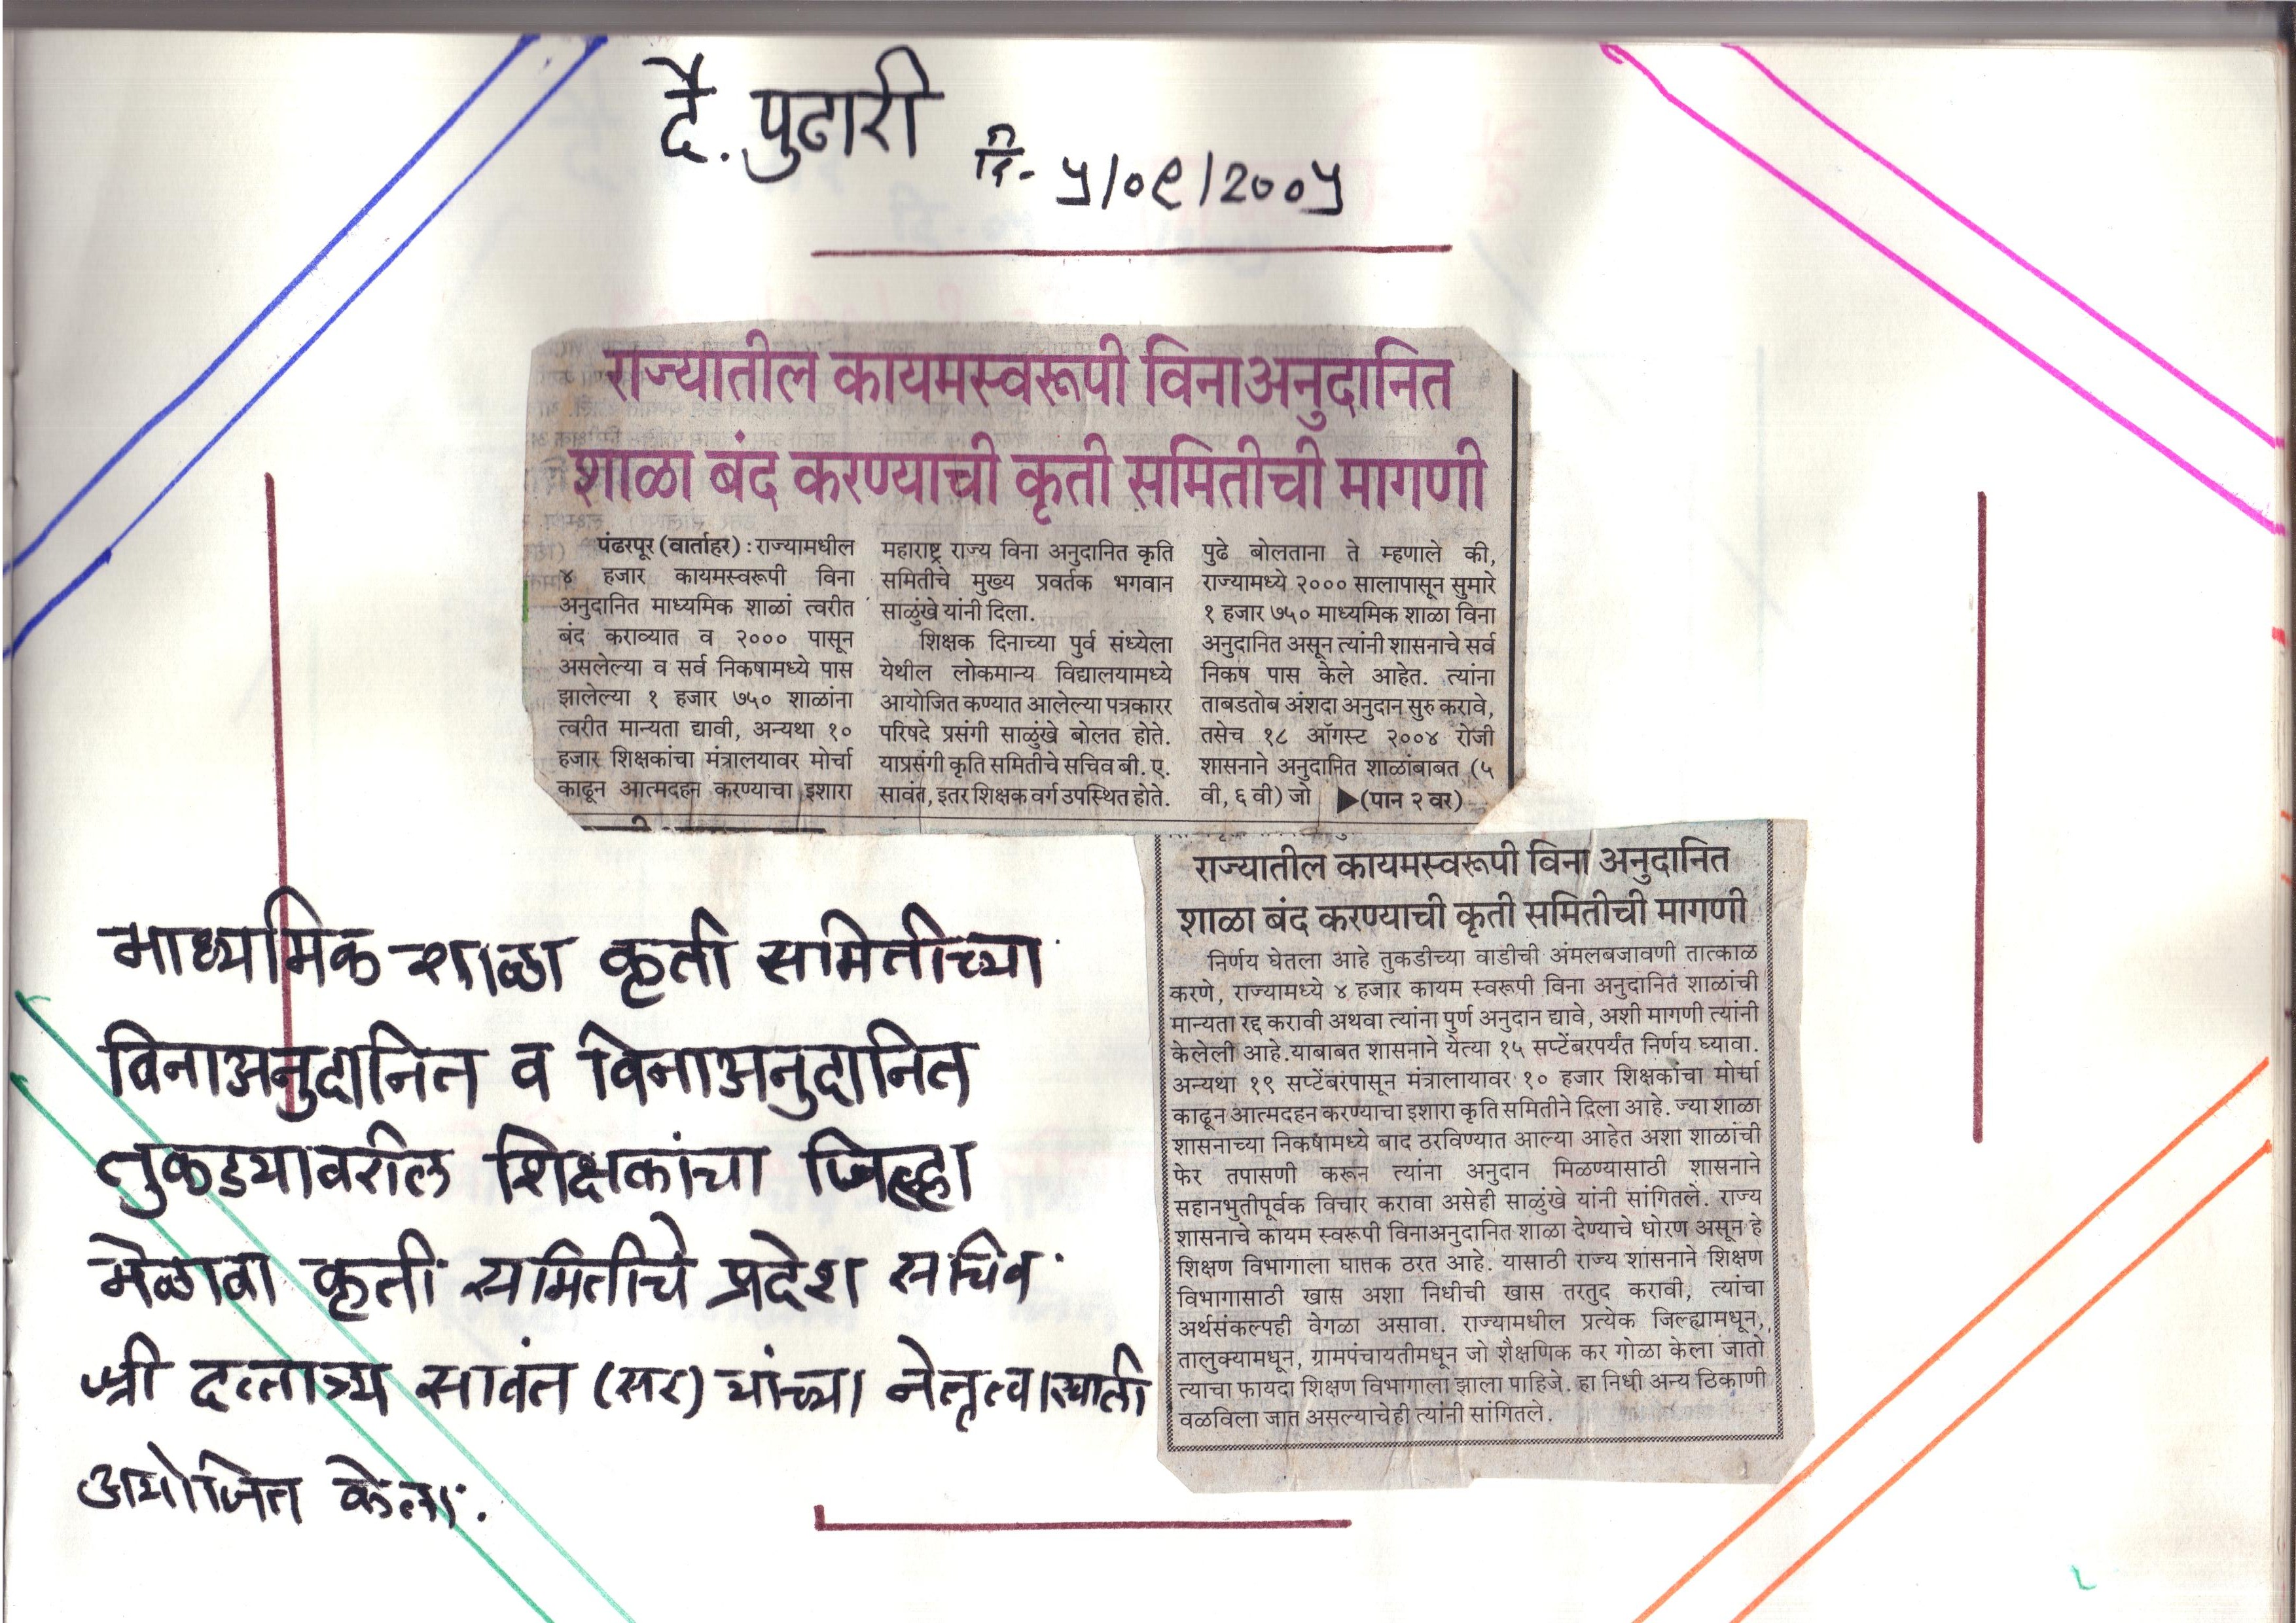 दै. पुढारी दि- ५/०९/२००५
राज्यातील कायमस्वरूपी विनाअनुदानित
शाळा बंद करण्याची कृती समितीची मागणी
पंढरपूर (वार्ताहर) : राज्यामधील
४ हजार कायमस्वरूपी विना
अनुदानित माध्यमिक शाळां त्वरीत
बंद कराव्यात व २००० पासून
असलेल्या व सर्व निकषामध्ये पास
झालेल्या १ हजार ७५० शाळांना
त्वरीत मान्यता द्यावी, अन्यथा १०
हजार शिक्षकांचा मंत्रालयावर मोर्चा
काढून आत्मदहन करण्याचा इशारा
महाराष्ट्र राज्य विना अनुदानित कृति
समितीचे मुख्य प्रवर्तक भगवान
साळुंखे यांनी दिला.
शिक्षक दिनाच्या पुर्व संध्येला
येथील लोकमान्य विद्यालयामध्ये
आयोजित कण्यात आलेल्या पत्रकारर
परिषदे प्रसंगी साळुंखे बोलत होते.
याप्रसंगी कृति समितीचे सचिव बी. ए.
सावंत, इतर शिक्षक वर्ग उपस्थित होते.
पुढे बोलताना ते म्हणाले की,
राज्यामध्ये २००० सालापासून सुमारे
१ हजार ७५० माध्यमिक शाळा विना
अनुदानित असून त्यांनी शासनाचे सर्व
निकष पास केले आहेत. त्यांना
ताबडतोब अंशदा अनुदान सुरु करावे,
तसेच १८ ऑगस्ट २००४ रोजी
शासनाने अनुदानित शाळांबाबत (५
वी, ६ वी) जो ▶(पान २ वर)
राज्यातील कायमस्वरूपी विना अनुदानित
शाळा बंद करण्याची कृती समितीची मागणी
निर्णय घेतला आहे तुकडीच्या वाडीची अंमलबजावणी तात्काळ
करणे, राज्यामध्ये ४ हजार कायम स्वरूपी विना अनुदानित शाळांची
मान्यता रद्द करावी अथवा त्यांना पुर्ण अनुदान द्यावे, अशी मागणी त्यांनी
केलेली आहे. याबाबत शासनाने येत्या १५ सप्टेंबरपर्यंत निर्णय घ्यावा.
अन्यथा १९ सप्टेंबरपासून मंत्रालायावर १० हजार शिक्षकांचा मोर्चा
काढून आत्मदहन करण्याचा इशारा कृति समितीने दिला आहे. ज्या शाळा
शासनाच्या निकषामध्ये बाद ठरविण्यात आल्या आहेत अशा शाळांची
फेर तपासणी करून त्यांना अनुदान मिळण्यासाठी शासनाने
सहानभुतीपूर्वक विचार करावा असेही साळुंखे यांनी सांगितले. राज्य
शासनाचे कायम स्वरूपी विनाअनुदानित शाळा देण्याचे धोरण असून हे
शिक्षण विभागाला घातक ठरत आहे. यासाठी राज्य शासनाने शिक्षण
विभागासाठी खास अशा निधीची खास तरतुद करावी, त्यांचा
अर्थसंकल्पही वेगळा असावा. राज्यामधील प्रत्येक जिल्ह्यामधून,
तालुक्यामधून, ग्रामपंचायतीमधून जो शैक्षणिक कर गोळा केला जातो
त्याचा फायदा शिक्षण विभागाला झाला पाहिजे. हा निधी अन्य ठिकाणी
वळविला जात असल्याचेही त्यांनी सांगितले.
माध्यमिक शाळा कृती समितीच्या
विनाअनुदानित व विनाअनुदानित
तुकड्यावरील शिक्षकांचा जिल्हा
मेळावा कृती समितीचे प्रदेश सचिव
श्री दत्तात्र्य सावंत (सर) यांच्या नेतृत्वाखाली
आयोजित केला.